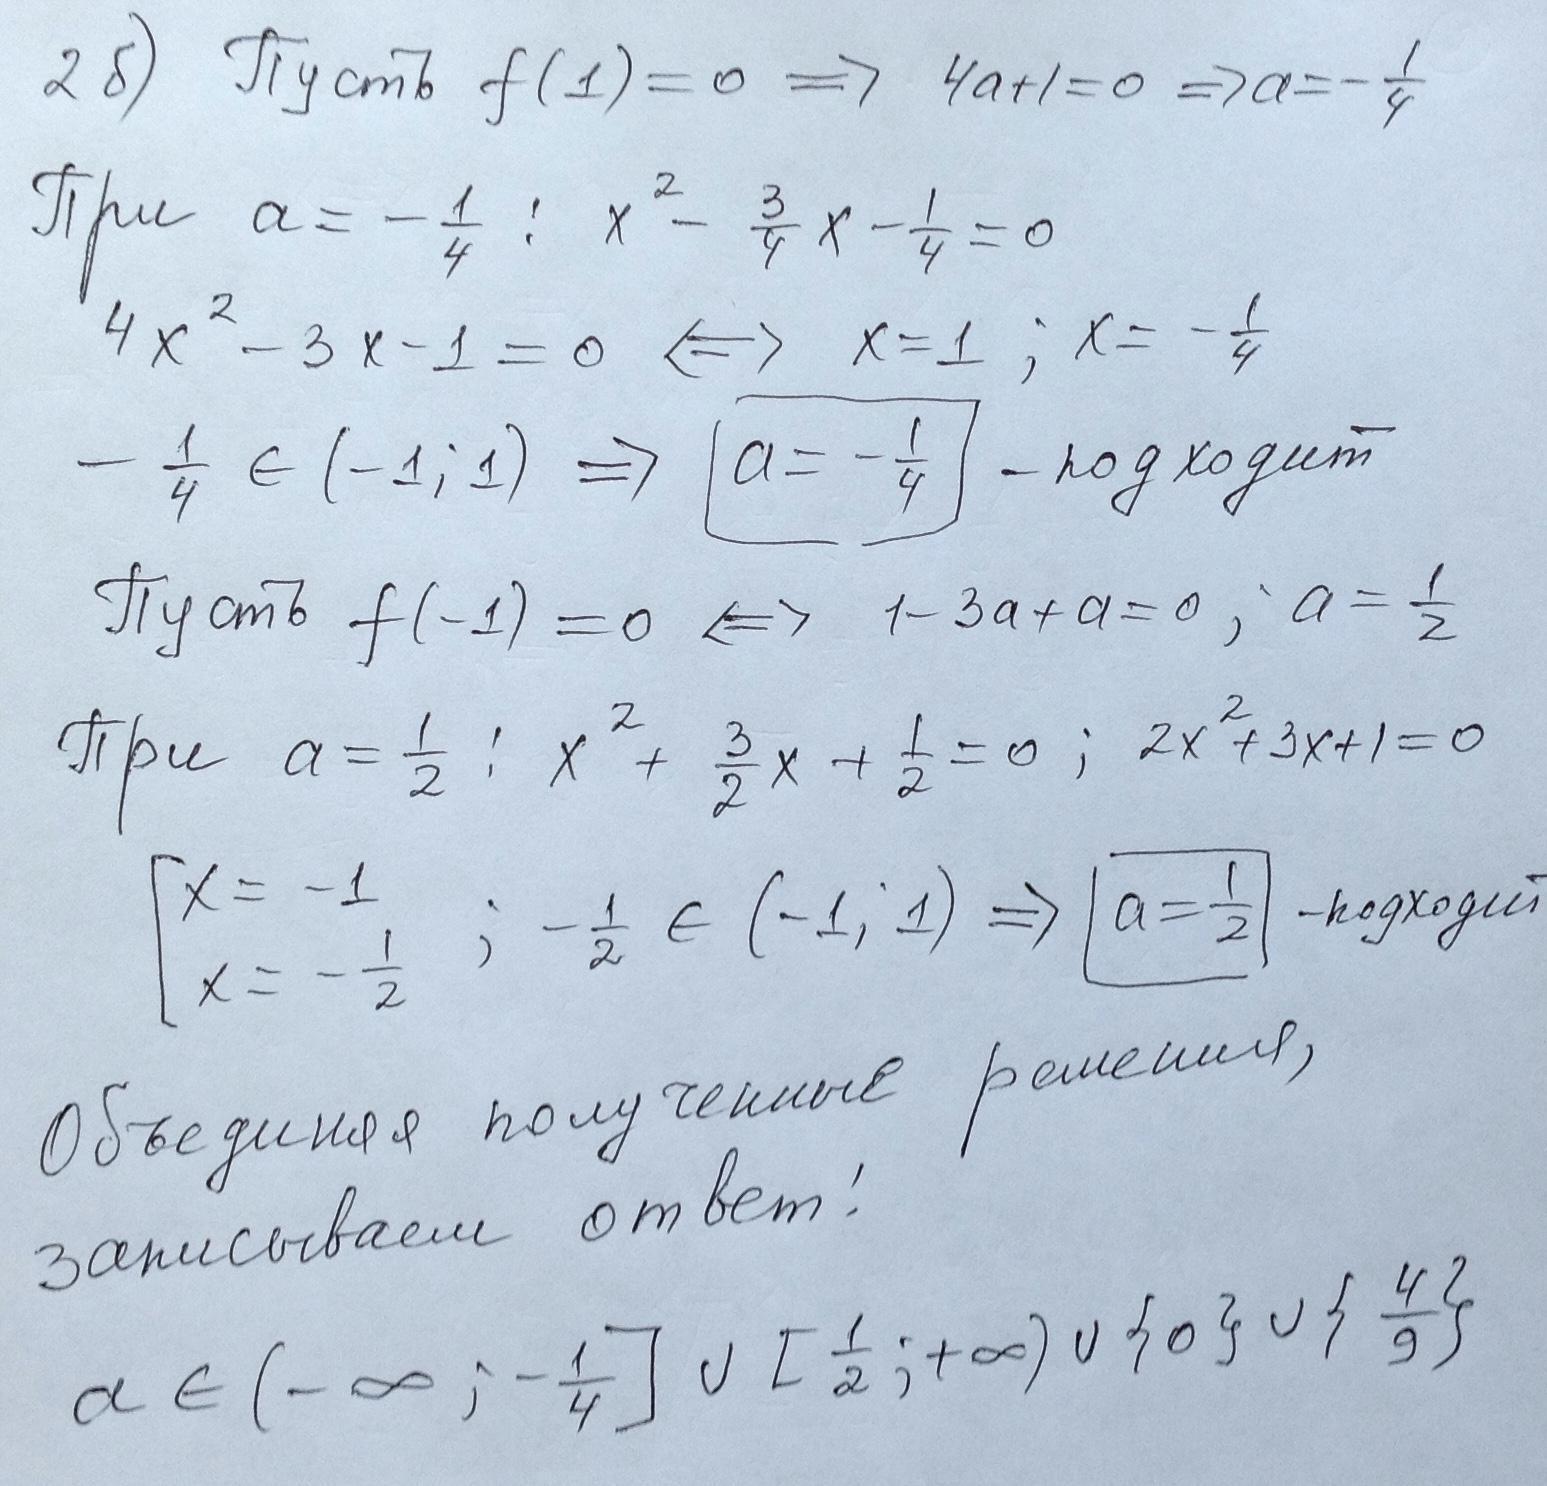 2б) Пусть f(1)=0 => 4a+1=0 => a=-1/4
При a=-1/4: x²-3/4x-1/4=0
4x²-3x-1=0 <=> x=1; x=-1/4
-1/4 ∈ (-1;1) => a=-1/4 - подходит
Пусть f(-1)=0 <=> 1-3a+a=0; a=1/2
При a=1/2: x²+3/2x+1/2=0; 2x²+3x+1=0
[x=-1
x=-1/2; -1/2 ∈ (-1;1) => a=1/2 - подходит
Объединяя полученные решения,
записываем ответ:
a ∈ (-∞; -1/4] ∪ [1/2; +∞) ∪ {0} ∪ {4/9}